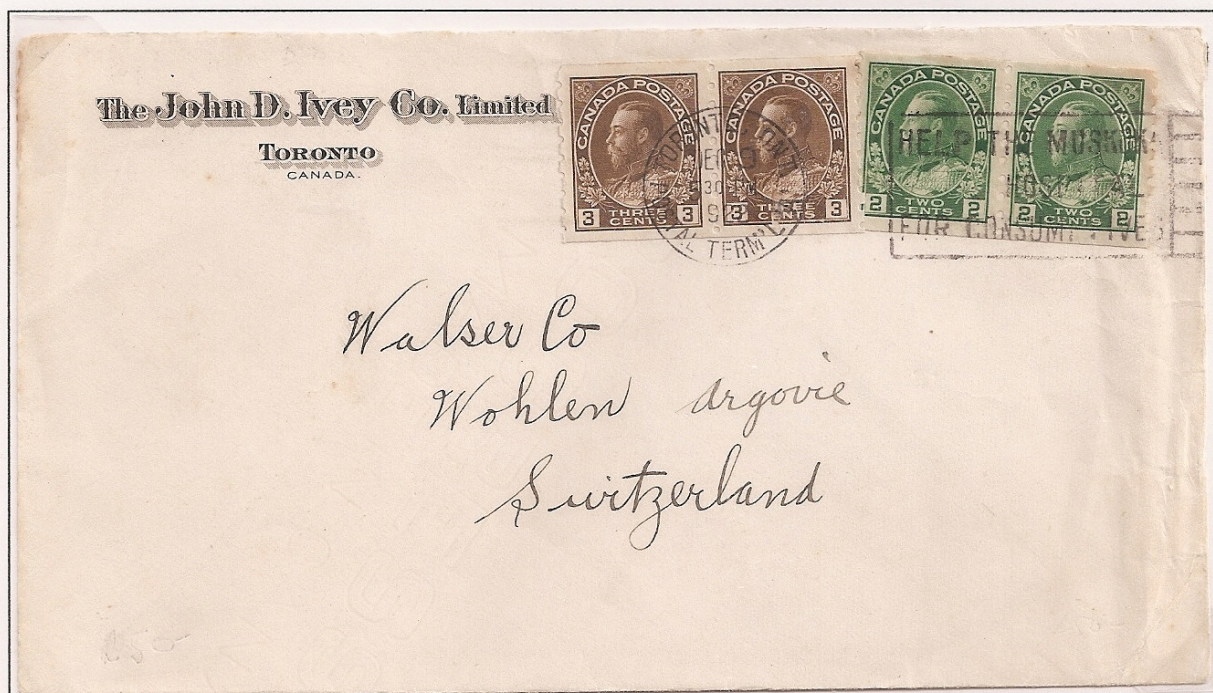 The John D. Ivey Co. Limited
TORONTO
CANADA.
CANADA POSTAGE
3 THREE CENTS 3
CANADA POSTAGE
3 THREE CENTS 3
CANADA POSTAGE
2 TWO CENTS 2
CANADA POSTAGE
2 TWO CENTS 2
TORONTO, ONT.
DEC 9
TERM'L
HELP THE MUSKOKA
HOSPITAL
FOR CONSUMPTIVES
Walser Co
Wohlen Argovie
Switzerland